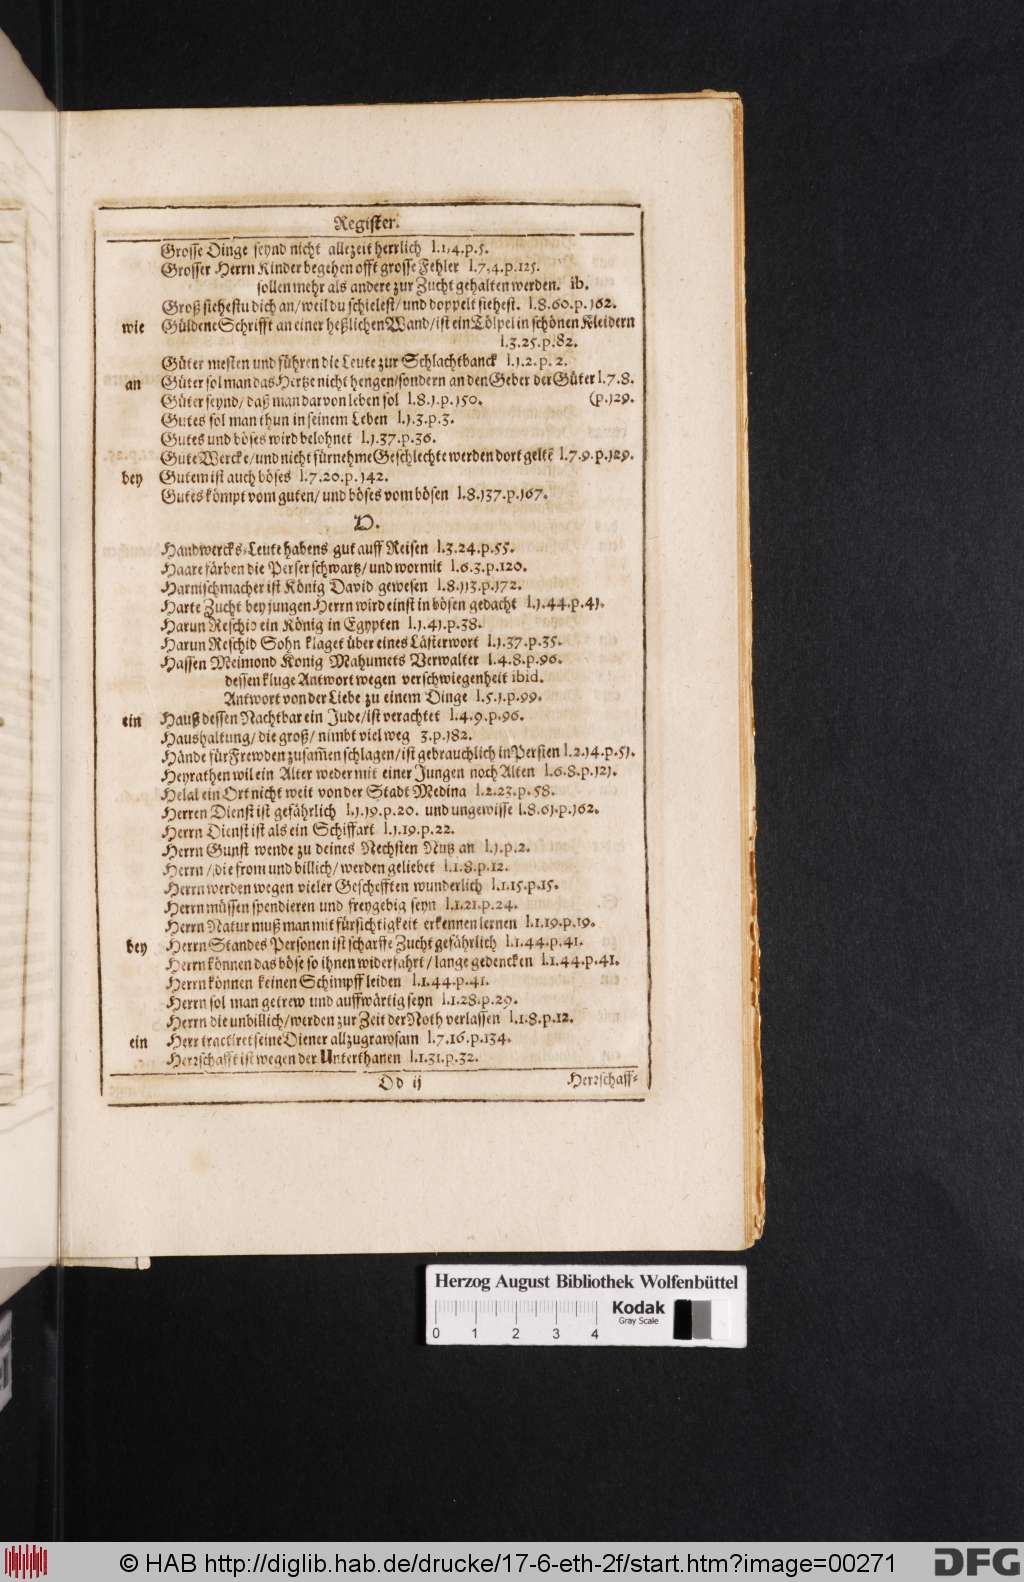 Register.
Grosse Dinge seynd nicht allezeit herrlich l.1.4.p.5.
Grosser Herrn Kinder begehen offt grosse Fehler l.7.4.p.125.
sollen mehr als andere zur Zucht gehalten werden. ib.
Groß siehestu dich an/ weil du schielest/ und doppelt siehest. l.8.60.p.162.
wie Güldene Schrifft an einer heßlichen Wand/ ist ein Tölpel in schönen Kleidern
l.3.25.p.82.
Güter mesten und führen die Leute zur Schlachtbanck l.1.2.p.2.
an Güter sol man das Hertze nicht hengen/ sondern an den Geber der Güter l.7.8.
Güter seynd/ daß man darvon leben sol l.8.1.p.150. (p.129.
Gutes sol man thun in seinem Leben l.1.3.p.3.
Gutes und böses wird belohnet l.1.37.p.36.
Gute Wercke/ und nicht fürnehme Geschlechte werden dort geltẽ l.7.9.p.129.
bey Gutem ist auch böses l.7.20.p.142.
Gutes kömpt vom guten/ und böses vom bösen l.8.137.p.167.
H.
Handwercks-Leute habens gut auff Reisen l.3.24.p.55.
Haare färben die Perser schwartz/ und wormit l.6.3.p.120.
Harnischmacher ist König David gewesen l.8.113.p.172.
Harte Zucht bey jungen Herrn wird einst in bösen gedacht l.1.44.p.41.
Harun Reschid ein König in Egypten l.1.41.p.38.
Harun Reschid Sohn klaget über eines Lästerwort l.1.37.p.35.
Hassen Meimond Konig Mahumets Verwalter l.4.8.p.96.
dessen kluge Antwort wegen verschwiegenheit ibid.
Antwort von der Liebe zu einem Dinge l.5.1.p.99.
ein Hauß dessen Nachtbar ein Jude/ ist verachtet l.4.9.p.96.
Haushaltung/ die groß/ nimbt viel weg 3.p.182.
Hände für Frewden zusam̃en schlagen/ ist gebrauchlich in Persien l.2.14.p.51.
Heyrathen wil ein Alter weder mit einer Jungen noch Alten l.6.8.p.121.
Helal ein Ort nicht weit von der Stadt Medina l.2.23.p.58.
Herren Dienst ist gefährlich l.1.19.p.20. und ungewisse l.8.61.p.162.
Herrn Dienst ist als ein Schiffart l.1.19.p.22.
Herrn Gunst wende zu deines Nechsten Nutz an l.1.p.2.
Herrn/ die from und billich/ werden geliebet l.1.8.p.12.
Herrn werden wegen vieler Geschefften wunderlich l.1.15.p.15.
Herrn müssen spendieren und freygebig seyn l.1.21.p.24.
Herrn Natur muß man mit fürsichtigkeit erkennen lernen l.1.19.p.19.
bey Herrn Standes Personen ist scharffe Zucht gefährlich l.1.44.p.41.
Herrn können das böse so ihnen widerfahrt/ lange gedencken l.1.44.p.41.
Herrn können keinen Schimpff leiden l.1.44.p.41.
Herrn sol man getrew und auffwärtig seyn l.1.28.p.29.
Herrn die unbillich/ werden zur Zeit der Noth verlassen l.1.8.p.12.
ein Herr tractiret seine Diener allzugrawsam l.7.16.p.134.
Herrschafft ist wegen der Unterthanen l.1.31.p.32.
Dd ij Herrschaff-
Herzog August Bibliothek Wolfenbüttel
Kodak
Gray Scale
0 1 2 3 4
© HAB http://diglib.hab.de/drucke/17-6-eth-2f/start.htm?image=00271
DFG